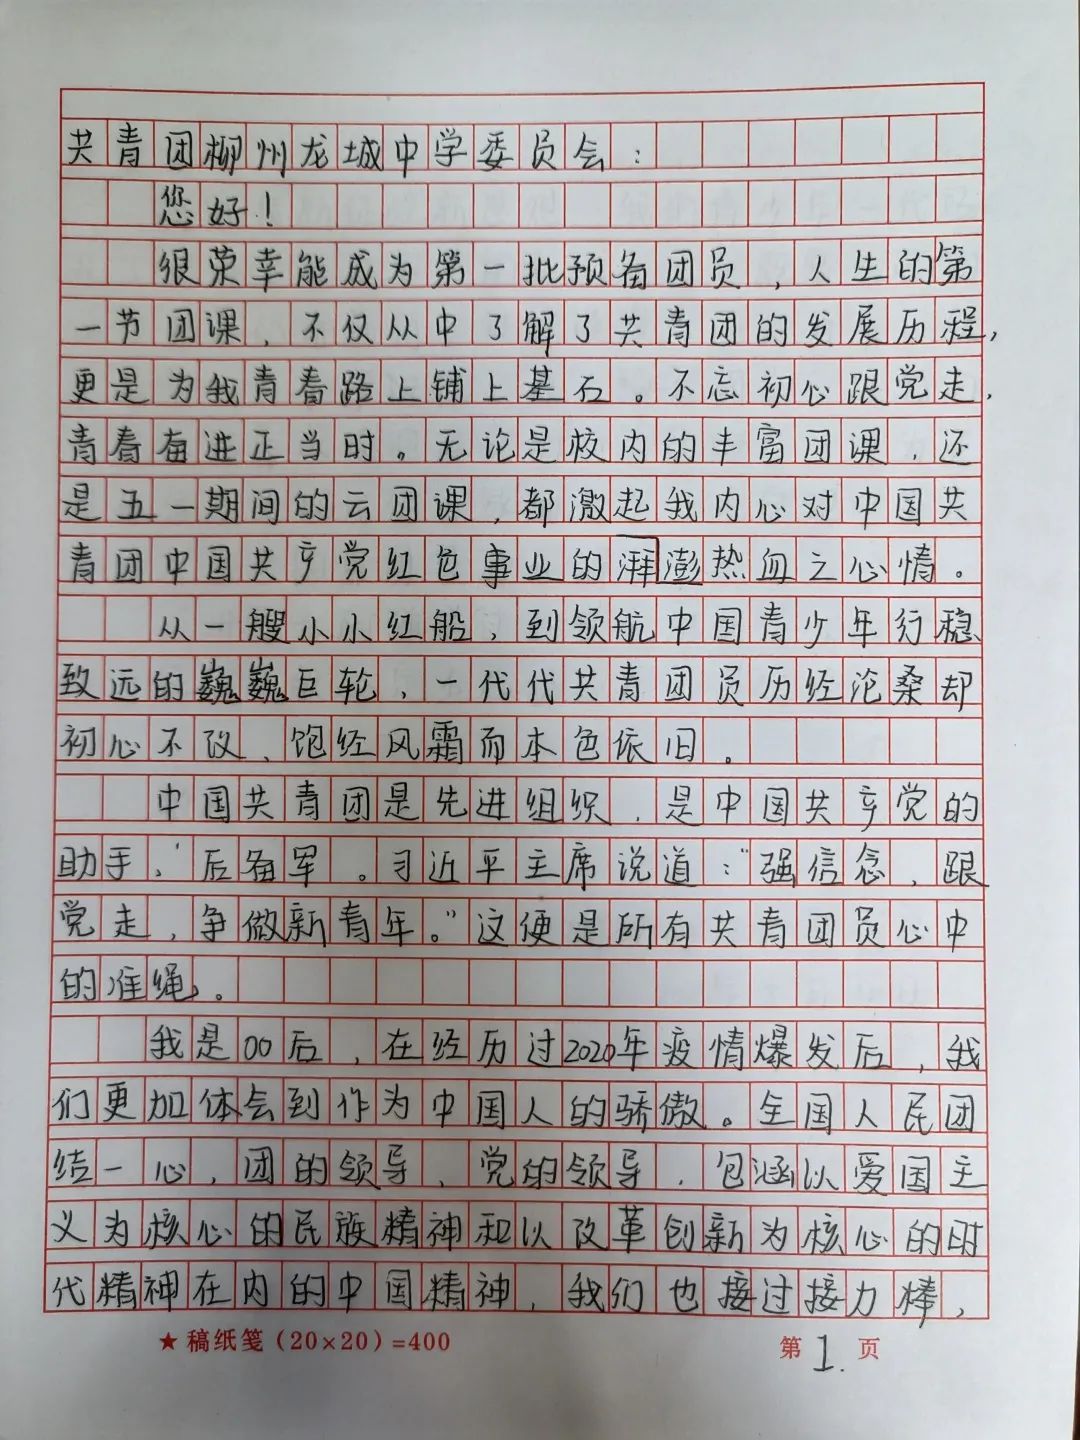 共青团柳州龙城中学委员会：
您好！
很荣幸能成为第一批预备团员，人生的第
一节团课，不仅从中了解了共青团的发展历程，
更是为我青春路上铺上基石。不忘初心跟党走，
青春奋进正当时。无论是校内的丰富团课，还
是五一期间的云团课，都激起我内心对中国共
青团中国共产党红色事业的湃澎热血之心情。
从一艘小小红船，到领航中国青少年行稳
致远的巍巍巨轮，一代代共青团员历经沧桑却
初心不改，饱经风霜而本色依旧。
中国共青团是先进组织，是中国共产党的
助手，后备军。习近平主席说道："强信念，跟
党走，争做新青年。"这便是所有共青团员心中
的准绳。
我是00后，在经历过2020年疫情爆发后，我
们更加体会到作为中国人的骄傲。全国人民团
结一心，团的领导，党的领导，包涵以爱国主
义为核心的民族精神和以改革创新为核心的时
代精神在内的中国精神，我们也接过接力棒，
★稿纸笺（20×20）=400
第1.页